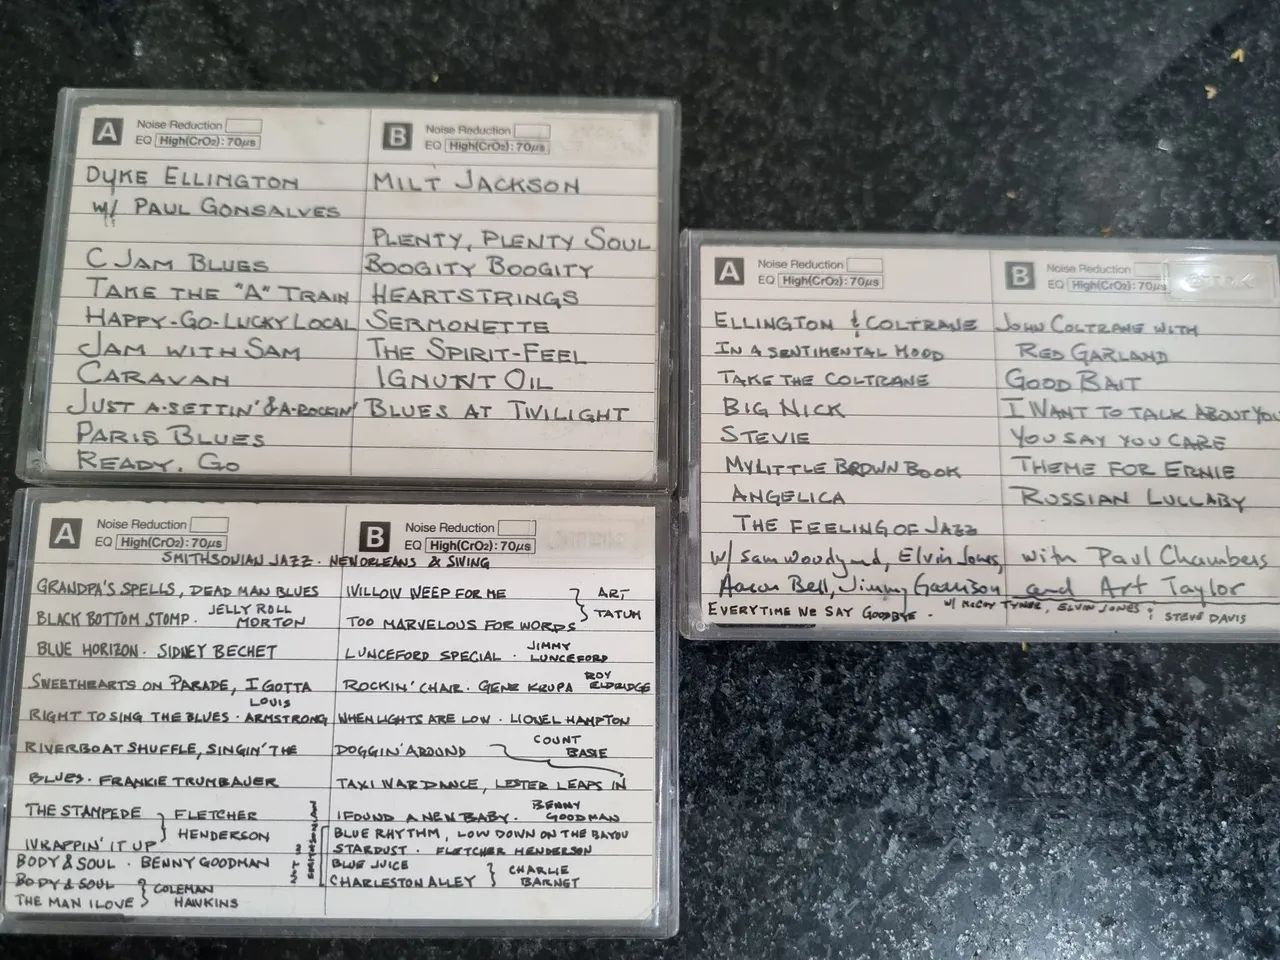 A Noise Reduction
EQ High(CrO2): 70µs
DYKE ELLINGTON
w/ PAUL GONSALVES
C JAM BLUES
TAKE THE "A" TRAIN
HAPPY-GO-LUCKY LOCAL
JAM WITH SAM
CARAVAN
JUST A-SETTIN' & A-ROCKIN'
PARIS BLUES
READY, GO
B Noise Reduction
EQ High(CrO2): 70µs
MILT JACKSON
PLENTY, PLENTY SOUL
BOOGITY BOOGITY
HEARTSTRINGS
SERMONETTE
THE SPIRIT-FEEL
IGNUNT OIL
BLUES AT TWILIGHT
A Noise Reduction
EQ High(CrO2): 70µs
ELLINGTON & COLTRANE
IN A SENTIMENTAL MOOD
TAKE THE COLTRANE
BIG NICK
STEVIE
MY LITTLE BROWN BOOK
ANGELICA
THE FEELING OF JAZZ
w/ Sam Woodyard, Elvin Jones,
Aaron Bell, Jimmy Garrison
EVERYTIME WE SAY GOODBYE - w/ McCOY TYNER, ELVIN JONES & STEVE DAVIS
B Noise Reduction
EQ High(CrO2): 70µs
JOHN COLTRANE WITH
RED GARLAND
GOOD BAIT
I WANT TO TALK ABOUT YOU
YOU SAY YOU CARE
THEME FOR ERNIE
RUSSIAN LULLABY
with Paul Chambers
and Art Taylor
A Noise Reduction
EQ High(CrO2): 70µs
B Noise Reduction
EQ High(CrO2): 70µs
SMITHSONIAN JAZZ - NEW ORLEANS & SWING
GRANDPA'S SPELLS, DEAD MAN BLUES
BLACK BOTTOM STOMP - JELLY ROLL MORTON
BLUE HORIZON - SIDNEY BECHET
SWEETHEARTS ON PARADE, I GOTTA
RIGHT TO SING THE BLUES - LOUIS ARMSTRONG
RIVERBOAT SHUFFLE, SINGIN' THE
BLUES - FRANKIE TRUMBAUER
THE STAMPEDE
WRAPPIN' IT UP } FLETCHER HENDERSON
BODY & SOUL - BENNY GOODMAN
BODY & SOUL
THE MAN I LOVE } COLEMAN HAWKINS
WILLOW WEEP FOR ME
TOO MARVELOUS FOR WORDS } ART TATUM
LUNCEFORD SPECIAL - JIMMY LUNCEFORD
ROCKIN' CHAIR - GENE KRUPA ROY ELDRIDGE
WHEN LIGHTS ARE LOW - LIONEL HAMPTON
DOGGIN' AROUND
TAXI WAR DANCE, LESTER LEAPS IN } COUNT BASIE
I FOUND A NEW BABY - BENNY GOODMAN
BLUE RHYTHM, LOW DOWN ON THE BAYOU
STARDUST - FLETCHER HENDERSON
BLUE JUICE
CHARLESTON ALLEY } CHARLIE BARNET